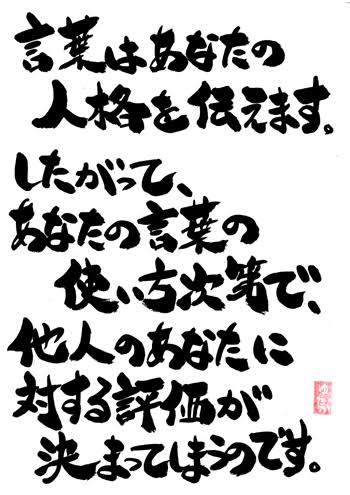 言葉はあなたの
人格を伝えます。
したがって、
あなたの言葉の
使い方次第で、
他人のあなたに
対する評価が
決まってしまうのです。